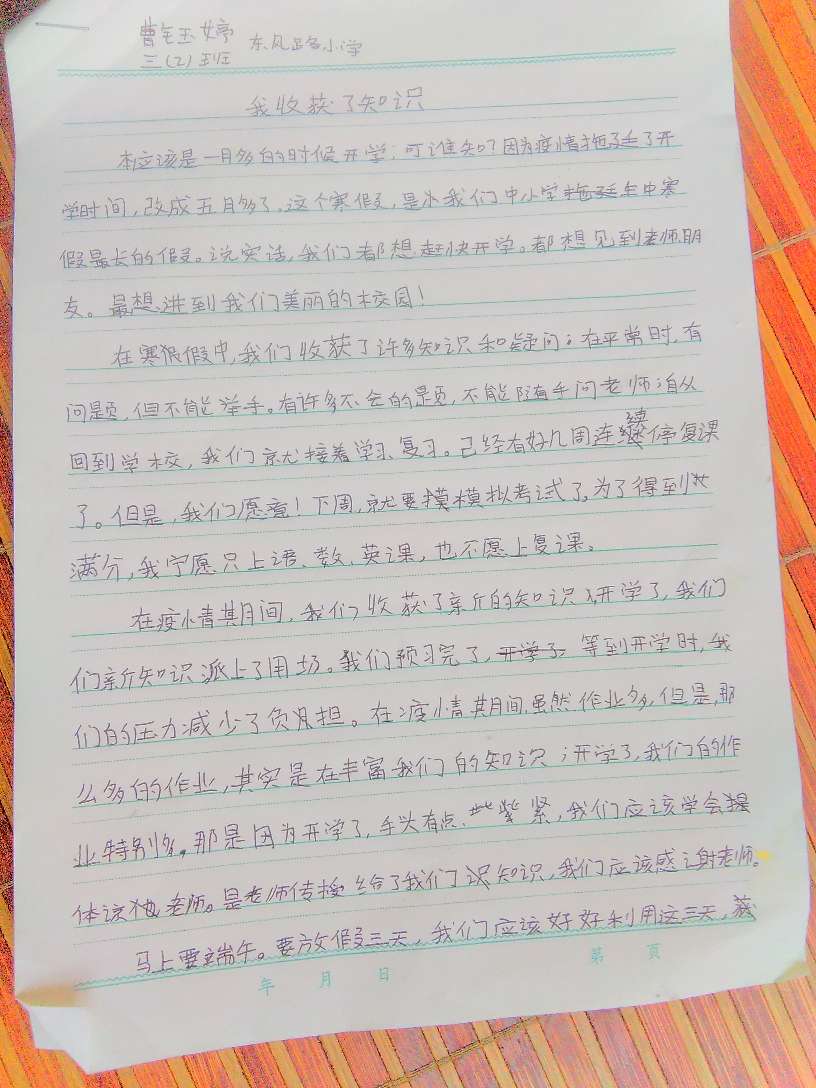 曹毛玉婷 东风路小学
三(2)班
我收获了知识
本应该是一月多的时候开学;可谁知?因为疫情拖了开
学时间,改成五月多了,这个寒假,是我们中小学生中寒
假最长的假。说实话,我们都想赶快开学。都想见到老师朋
友。最想进到我们美丽的校园!
在寒假中,我们收获了许多知识和疑问;在平常时,有
问题,但不能举手。有许多不会的题,不能随手问老师;自从
回到学校,我们就接着学习、复习。已经有好几周连续停复课
了。但是,我们愿意!下周,就要摸模拟考试了。为了得到
满分,我宁愿只上语、数、英课,也不愿上复课。
在疫情期间,我们收获了新的知识,开学了,我们
们新知识派上了用场。我们预习完了,开学了,等到开学时,我
们的压力减少了负担。在疫情期间,虽然作业多,但是,那
么多的作业,其实是在丰富我们的知识;开学了,我们的作
业特别多。那是因为开学了,手头有点紧,我们应该学会
体谅老师。是老师传授给了我们知识,我们应该感谢老师。
马上要端午。要放假三天,我们应该好好利用这三天,获
年 月 日 第 页